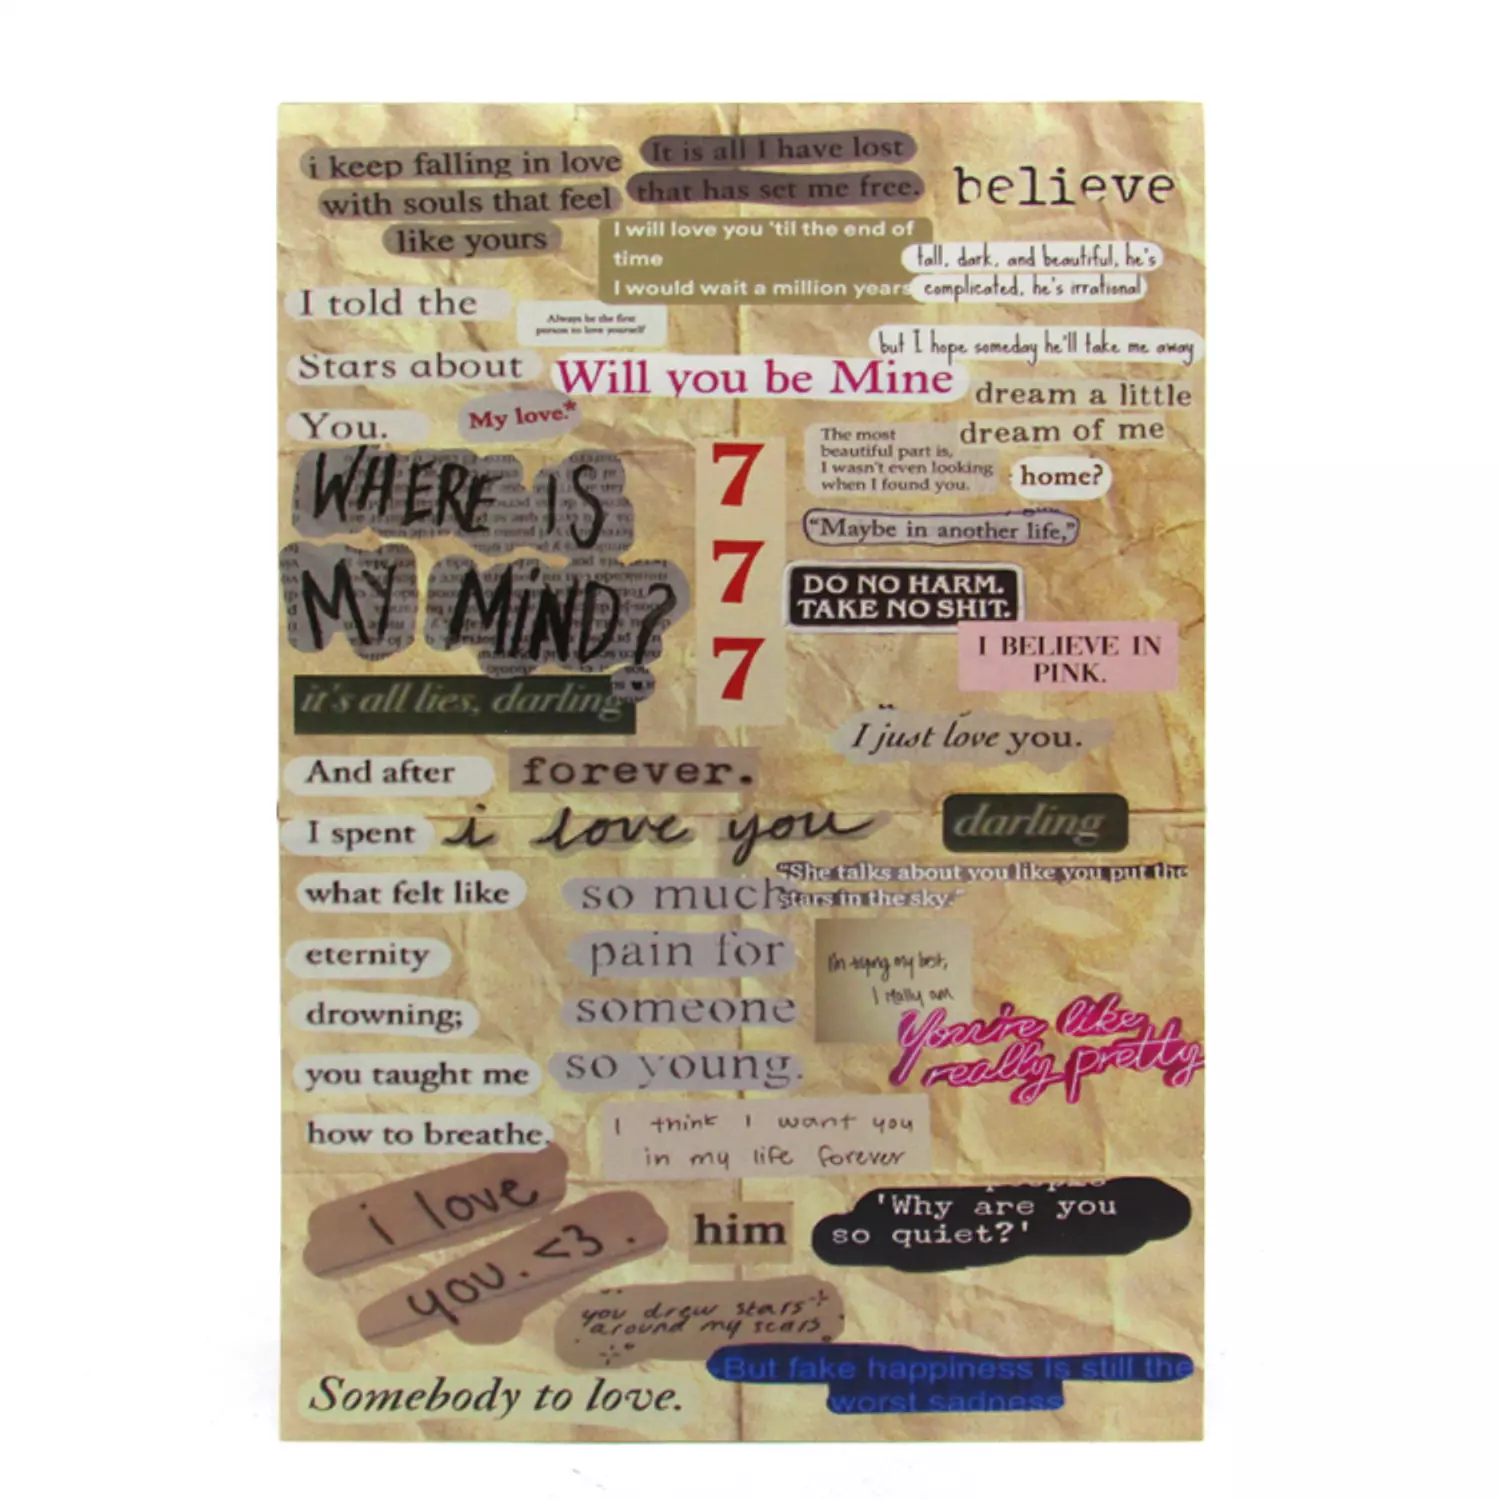 i keep falling in love
with souls that feel
like yours
It is all I have lost
that has set me free.
believe
I will love you 'til the end of
time
I would wait a million years
tall, dark, and beautiful, he's
complicated, he's irrational
but I hope someday he'll take me away
I told the
Stars about
You.
Always be the first
person to love yourself
Will you be Mine
My love.*
dream a little
dream of me
The most
beautiful part is,
I wasn't even looking
when I found you.
home?
WHERE IS
MY MIND?
7
7
7
"Maybe in another life,"
DO NO HARM.
TAKE NO SHIT.
I BELIEVE IN
PINK.
it's all lies, darling
I just love you.
And after
forever.
I spent
i love you
darling
what felt like
eternity
drowning;
you taught me
how to breathe.
so much
pain for
someone
so young.
"She talks about you like you put the
stars in the sky."
I'm trying my best,
I really am
You're like
really pretty
I think I want you
in my life forever
i love
you. <3.
him
people
'Why are you
so quiet?'
you drew stars
around my scars
But fake happiness is still the
worst sadness
Somebody to love.